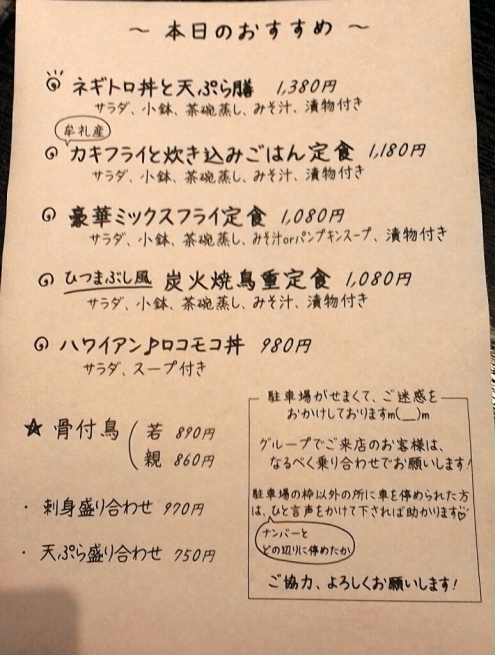 ～ 本日のおすすめ ～
ネギトロ丼と天ぷら膳 1,380円
サラダ、小鉢、茶碗蒸し、みそ汁、漬物付き
牟礼産
カキフライと炊き込みごはん定食 1,180円
サラダ、小鉢、茶碗蒸し、みそ汁、漬物付き
豪華ミックスフライ定食 1,080円
サラダ、小鉢、茶碗蒸し、みそ汁orパンプキンスープ、漬物付き
ひつまぶし風 炭火焼鳥重定食 1,080円
サラダ、小鉢、茶碗蒸し、みそ汁、漬物付き
ハワイアン♪ロコモコ丼 980円
サラダ、スープ付き
☆ 骨付鳥 ( 若 890円
親 860円
・ 刺身盛り合わせ 970円
・ 天ぷら盛り合わせ 750円
駐車場がせまくて、ご迷惑を
おかけしておりますm(__)m
グループでご来店のお客様は、
なるべく乗り合わせでお願いします!
駐車場の枠以外の所に車を停められた方
は、ひと言声をかけて下されば助かります♡
ナンバーと
どの辺りに停めたか
ご協力、よろしくお願いします!